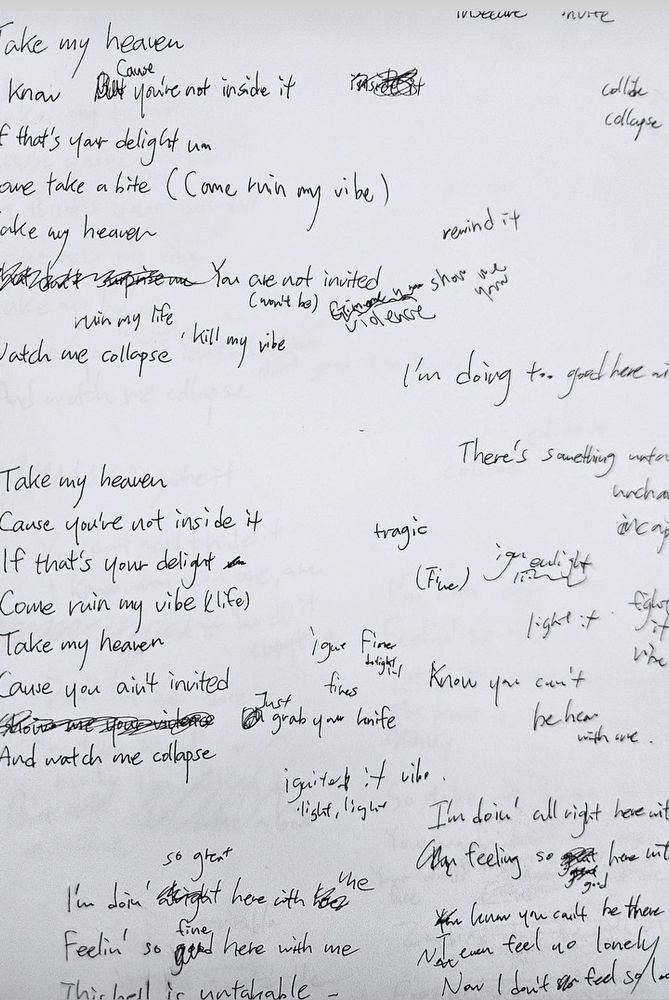 insecure invite
Take my heaven
know Cause you're not inside it
collide
collapse
f that's your delight um
ome take a bite (Come ruin my vibe)
ake my heaven
remind it
You are not invited
(won't be)
show me your
violence
ruin my life
kill my vibe
Watch me collapse
I'm doing too good here wi
There's something unta
uncha
incap
Take my heaven
Cause you're not inside it
If that's your delight
Come ruin my vibe (life)
tragic
(Fine)
light it
fight
it
vibe
Take my heaven
Finer
delight
fines
Cause you ain't invited
Know you can't
be here
with me.
Just
grab your knife
And watch me collapse
ignited it vibe.
light, light
I'm doin' all right here wit
feeling so here wit
good
so great
I'm doin' here with me
fine
Feelin' so here with me
This hell is untakable -
know you can't be there
Not even feel no lonely
Now I don't feel so lo